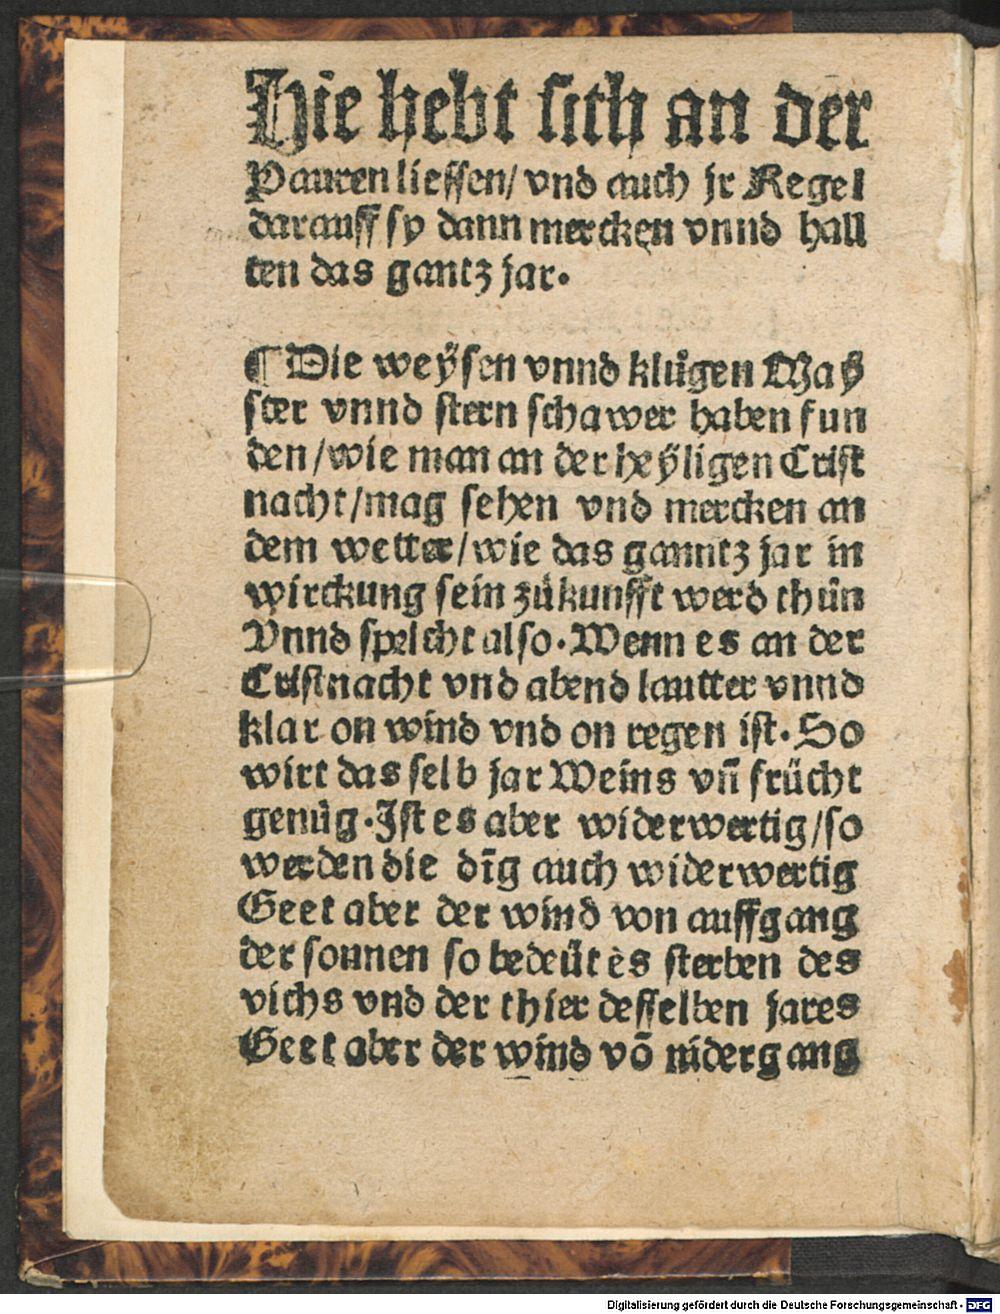 Hie hebt sich an der
Pauren liessen/ vnd auch jr Regel
darauff sy dann mercken vnnd hall
ten das gantz jar.
¶ Die weÿsen vnnd klůgen Maÿ
ster vnnd stern schawer haben fun
den/wie man an der heÿligen Crist
nacht/mag sehen vnd mercken an
dem wetter/wie das ganntz jar in
wirckung sein zůkunfft werd thůn
Vnnd spricht also. Wenn es an der
Cristnacht vnd abend lautter vnnd
klar on wind vnd on regen ist. So
wirt das selb jar Weins vñ frücht
genůg. Ist es aber widerwertig/so
werden die dīg auch widerwertig
Geet aber der wind von auffgang
der sonnen so bedeüt es sterben des
vichs vnd der thier desselben jares
Geet aber der wind vō nidergang
Digitalisierung gefördert durch die Deutsche Forschungsgemeinschaft - DFG